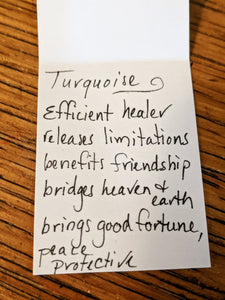 Turquoise
Efficient healer
releases limitations
benefits friendship
bridges heaven &
earth
brings good fortune,
peace
protective